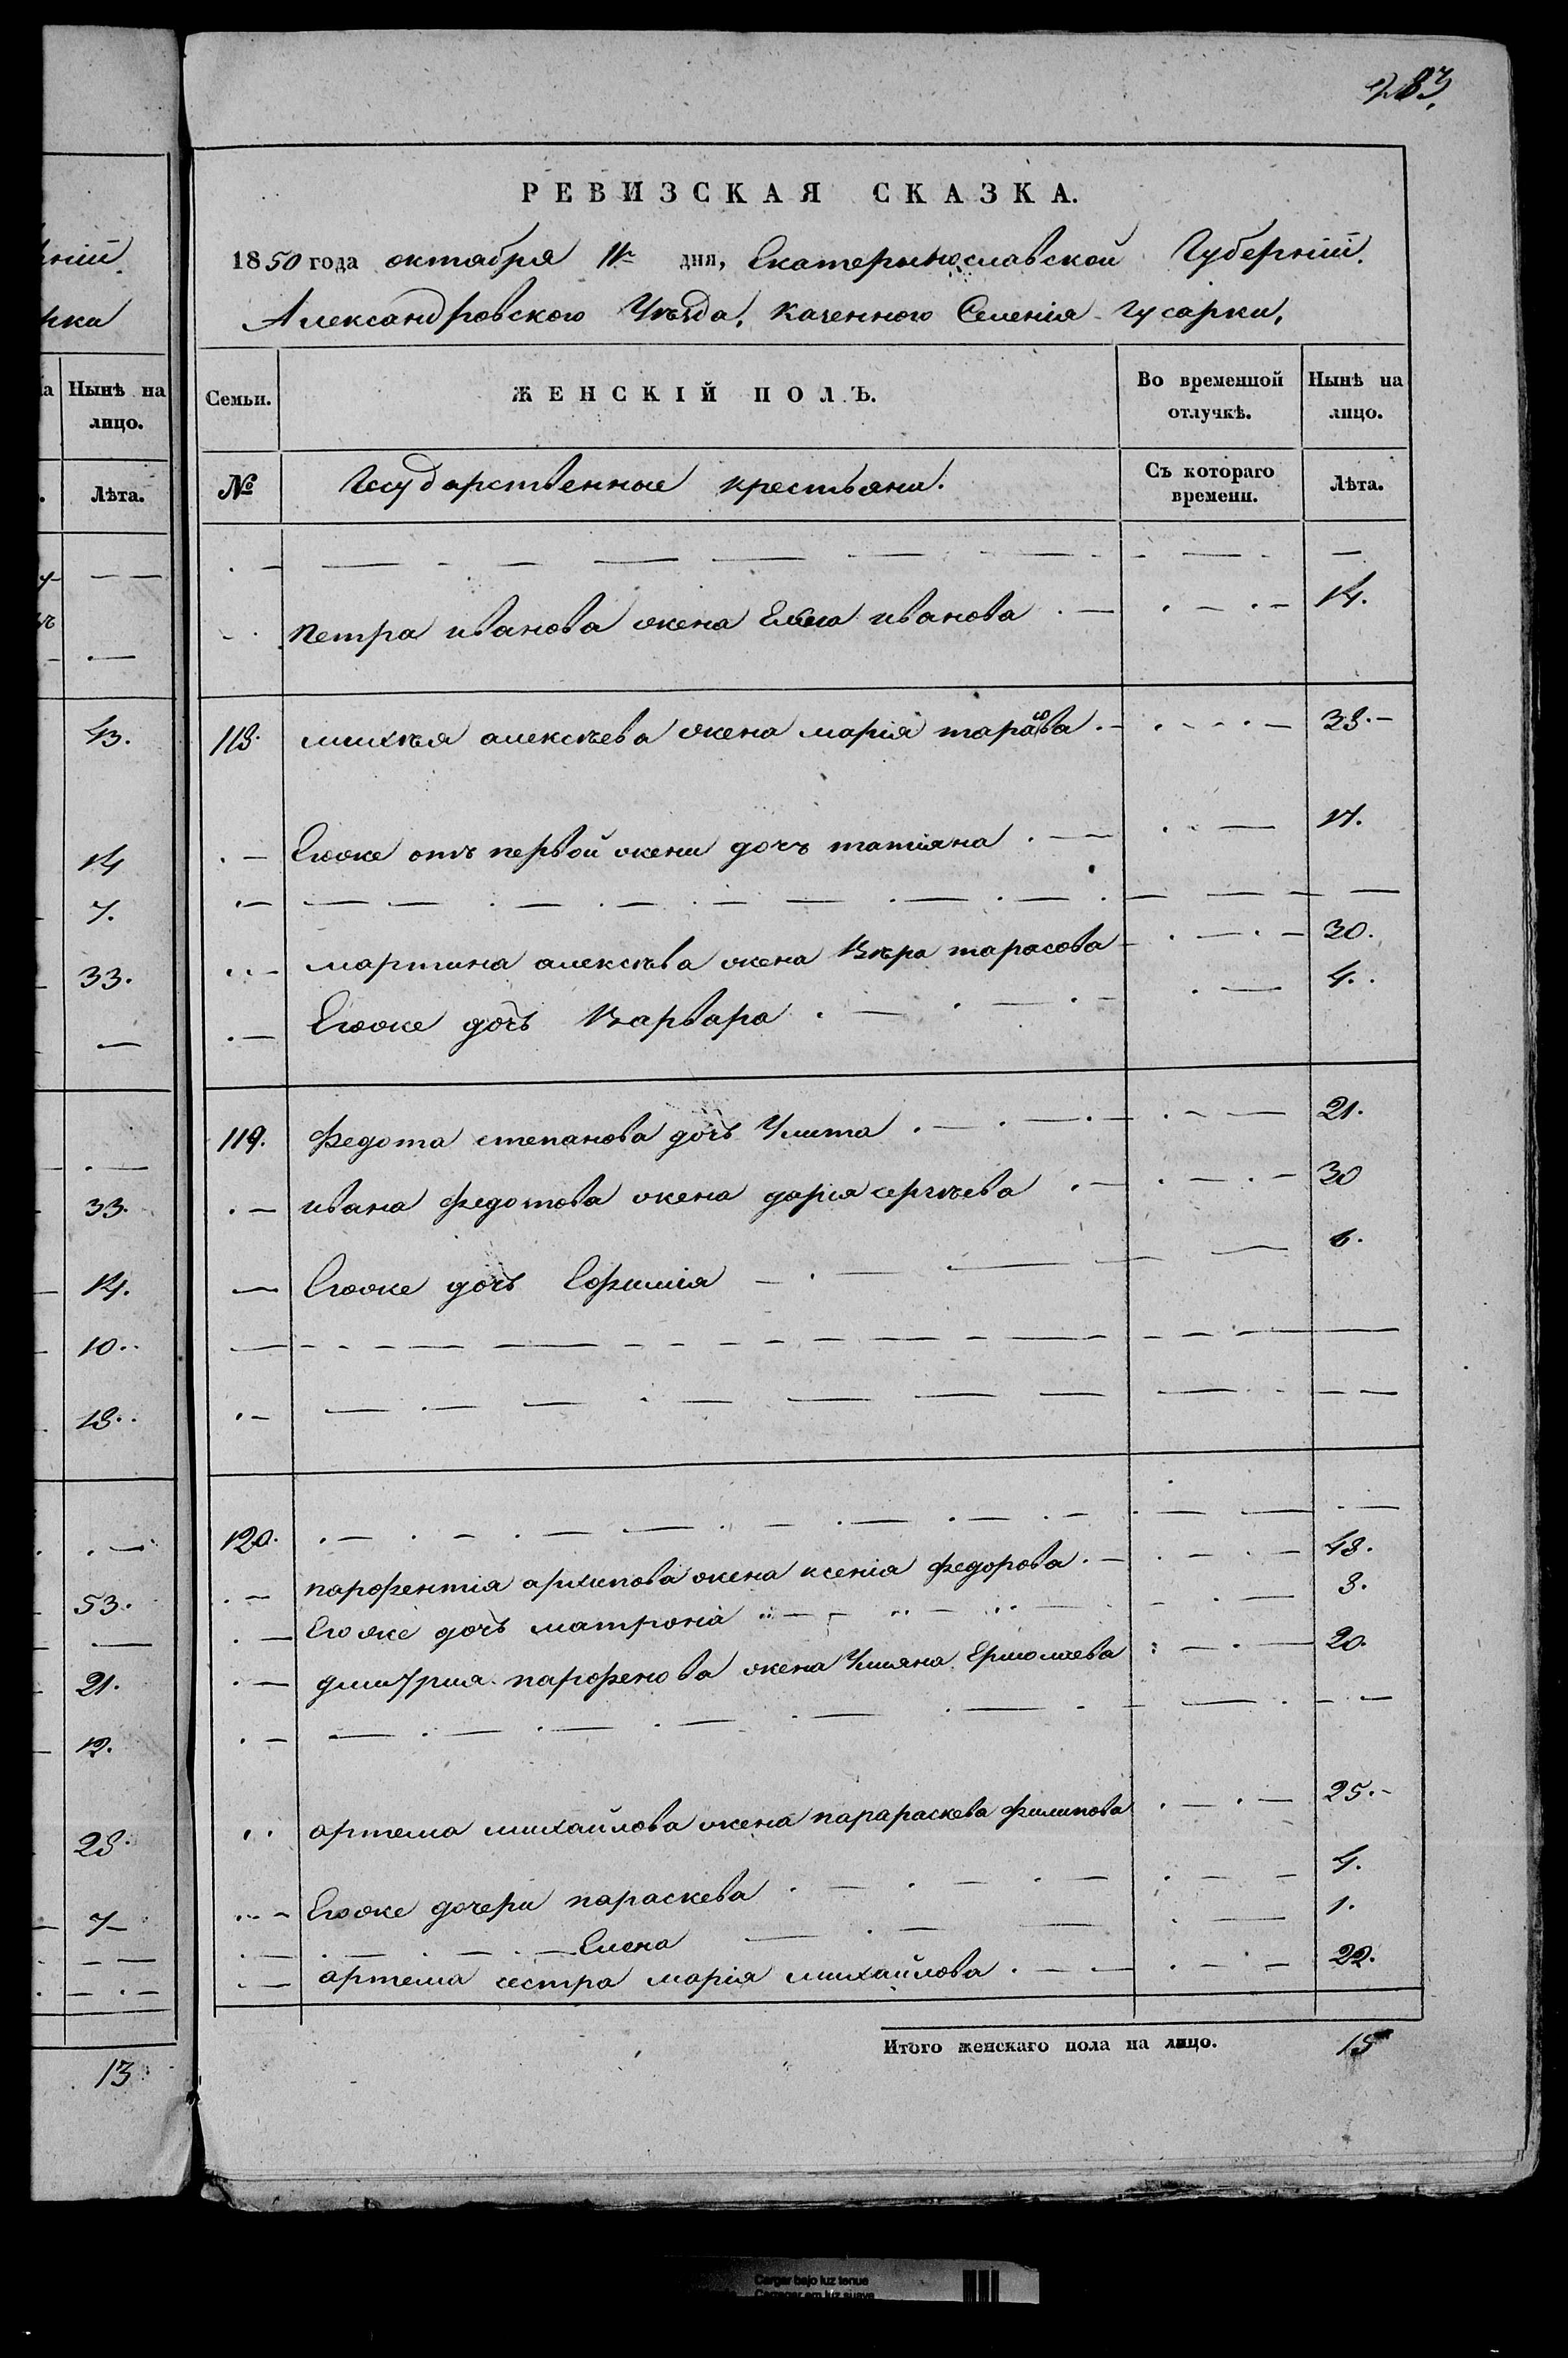 283.
РЕВИЗСКАЯ СКАЗКА.
1850 года октября 11го дня, Екатеринославской Губерніи.
Александровского Уѣзда, Казенного Селенія Гусарки,
Семьи.
ЖЕНСКІЙ ПОЛЪ.
Во временной отлучкѣ.
Нынѣ на лицо.
№
Государственные крестьяни.
Съ котораго времени.
Лѣта.
Петра иванова жена иванова 14.
118. михѣя алексѣева жена марія тарасова 38.
Егоже отъ первой жени дочъ татіяна 14.
мартина алексѣва жена Вѣра тарасова 30.
Егоже дочъ Варвара 4.
119. Федота степанова дочъ Улита 21.
ивана федотова жена дарія сергѣева 30
Егоже дочъ Ефимія 6.
120.
парфентія архипова жена ксенія федорова 48.
Егоже дочъ матрона 3.
дмитрия парфенова жена Улияна Ермолаева 20.
артема михайлова жена парараскева филипова 25.
Егоже дочери параскева 4.
Елена 1.
артема сестра марія михайлова 22.
Итого женскаго пола на лицо. 15
ній
рки
Нынѣ на лицо.
Лѣта.
43.
14
7.
33.
33.
14.
10.
18.
53.
21.
12.
28.
7
13
Cargar bajo luz tenue